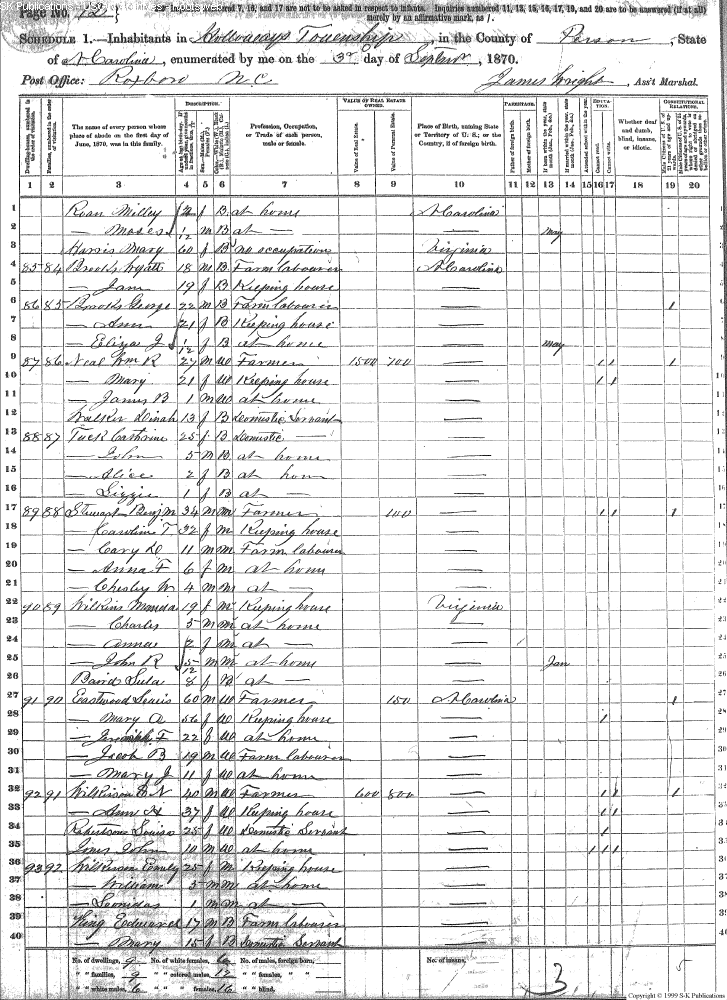 Page No. 12
Inquiries numbered 7, 16, and 17 are not to be asked in respect to infants. Inquiries numbered 11, 12, 15, 16, 17, 19, and 20 are to be answered (if at all) merely by an affirmative mark, as /.
SCHEDULE 1.—Inhabitants in Holloways Township, in the County of Person, State
of N Carolina, enumerated by me on the 3d day of Septr, 1870.
Post Office: Roxboro N.C. James Wright, Ass't Marshal.
The name of every person whose place of abode on the first day of June, 1870, was in this family.
DESCRIPTION.
Profession, Occupation, or Trade of each person, male or female.
VALUE OF REAL ESTATE OWNED.
Value of Real Estate.
Value of Personal Estate.
Place of Birth, naming State or Territory of U. S.; or the Country, if of foreign birth.
PARENTAGE.
Father of foreign birth.
Mother of foreign birth.
EDUCATION.
Cannot read.
Cannot write.
Whether deaf and dumb, blind, insane, or idiotic.
CONSTITUTIONAL RELATIONS.
1 2 3 4 5 6 7 8 9 10 11 12 13 14 15 16 17 18 19 20
1 Milley f B at home N Carolina
2 — Moses 1/12 m B at — — May
3 Harris Mary 60 f B no occupation Virginia
4 85 84 Brooks Wyatt 18 m B Farm labourer N Carolina
5 — Jane 19 f B Keeping house —
6 86 85 Brooks George 22 m B Farm labourer — 1
7 — Ann 21 f B Keeping house —
8 — Eliza J 1/12 f B at home — May
9 87 86 Neal Wm R 27 m W Farmer 1500 700 — 1 1 1
10 — Mary 21 f W Keeping house — 1 1
11 — James B 1 m W at home —
12 Walker Dinah 13 f B Domestic Servant —
13 88 87 Tuck Catharine 25 f B Domestic — —
14 — John 5 m B at home —
15 — Alice 2 f B at home —
16 — Lizzie 1 f B at — —
17 89 88 Stewart Benj m 34 m M Farmer 100 — 1 1 1
18 Caroline T 32 f M Keeping house —
19 — Cary D 11 m M Farm labourer —
20 — Anna F 6 f M at home —
21 — Chesley W 4 m M at — —
22 90 89 Wilkins Manda 19 f M Keeping house Virginia
23 — Charles 5 m M at home —
24 — 2 f M at — —
25 — John R 5/12 m M at home — Jan
26 Baird Lula 8 f at — —
27 91 90 Eastwood Louis 60 m W Farmer 150 N Carolina 1
28 — Mary A 56 f W Keeping house — 1
29 — F 22 f W at home —
30 — Jacob B 19 m W Farm labourer —
31 — Mary J 11 f W at home —
32 92 91 Wilkerson N 40 m W Farmer 600 800 — 1 1 1
33 — Ann H 37 f W Keeping house — 1 1
34 Robertson Louisa 25 f W Domestic Servant — 1
35 Jones John 10 m W at home — 1 1 1
36 93 92 Wilkerson Emily 25 f M Keeping house —
37 — William 5 m M at home —
38 — Leonidas 1 m M at — —
39 King Edward 17 m B Farm labourer —
40 — Mary 15 f B Domestic Servant —
No. of dwellings, 9 No. of white females, 6 No. of males, foreign born, No. of insane,
" " families, 9 " " colored males, 12 " " females, " "
" " white males, 6 " " females, 16 " " blind,
3
5
Copyright © 1999 S-K Publications